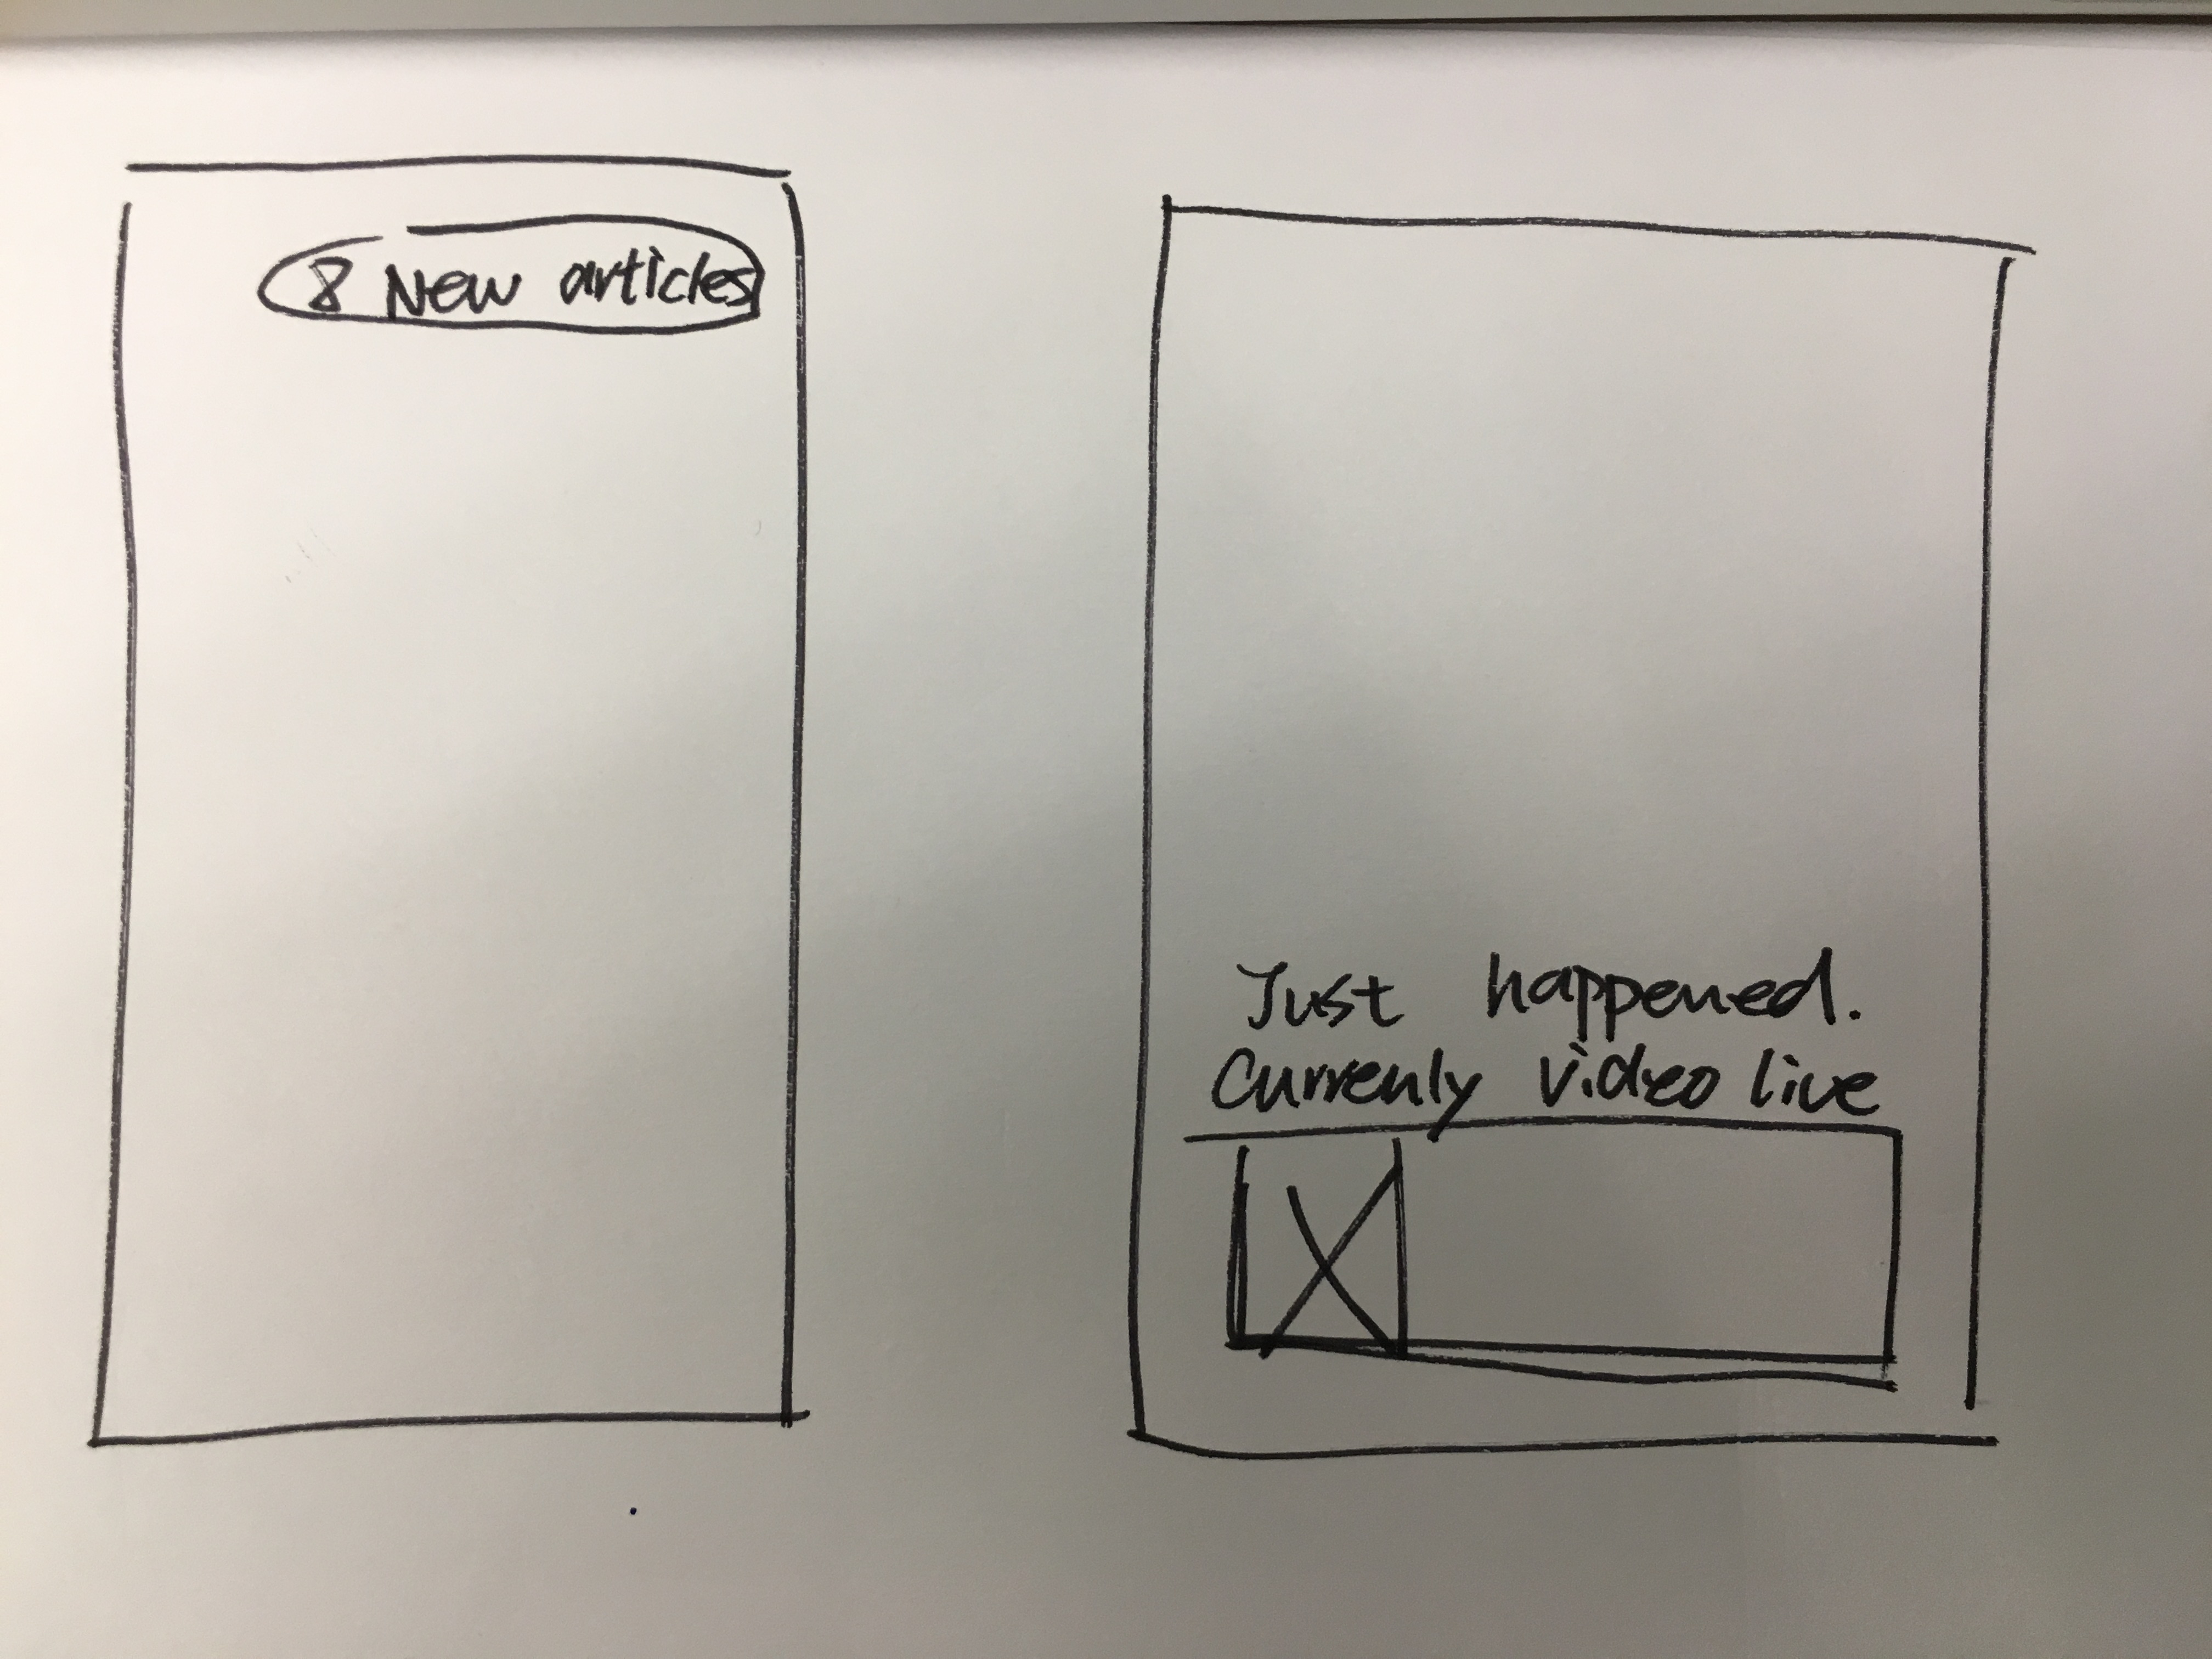 8 New articles
Just happened.
Currenly Video live